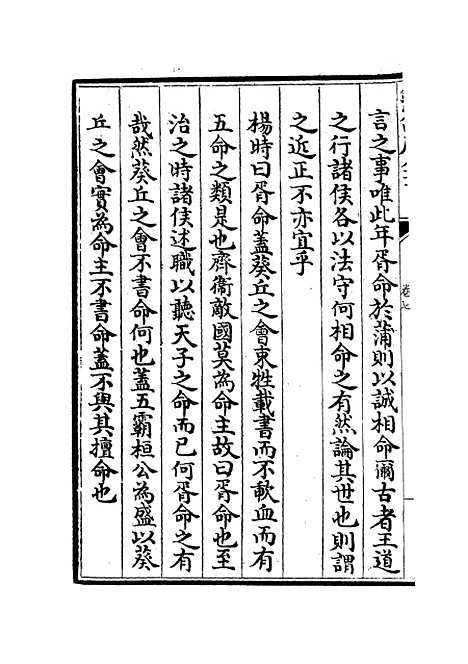 言之事唯此年胥命於蒲則以誠相命爾古者王道
之行諸侯各以法守何相命之有然論其世也則謂
之近正不亦宜乎
楊時曰胥命蓋葵丘之會束牲載書而不歃血而有
五命之類是也齊衛敵國莫為命主故曰胥命也至
治之時諸侯述職以聽天子之命而已何胥命之有
哉然葵丘之會不書命何也蓋五霸桓公為盛以葵
丘之會實為命主不書命蓋不與其擅命也
卷七